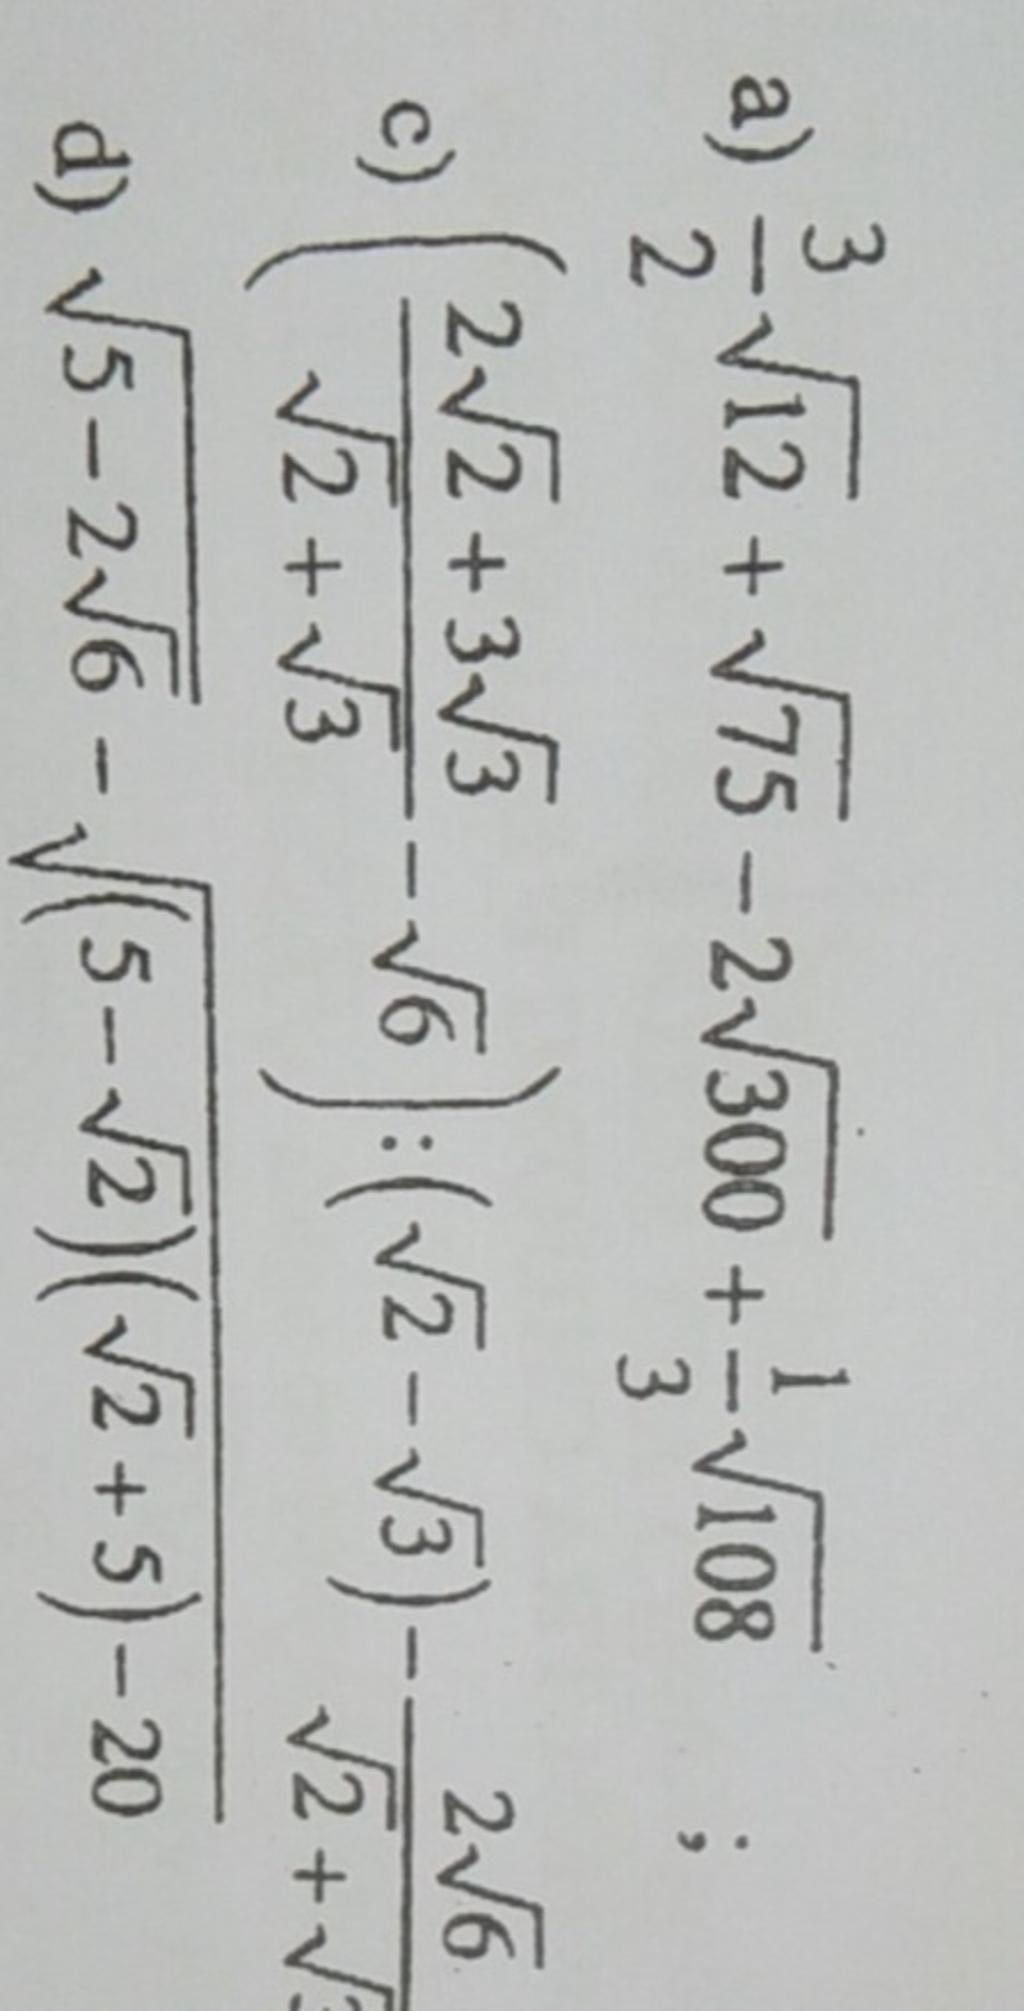 a) 3/2 √12 + √75 − 2√300 + 1/3 √108 ;
c) ( (2√2 + 3√3)/(√2 + √3) − √6 ) : (√2 − √3) − 2√6/(√2 + √
d) √(5 − 2√6) − √((5 − √2)(√2 + 5) − 20)